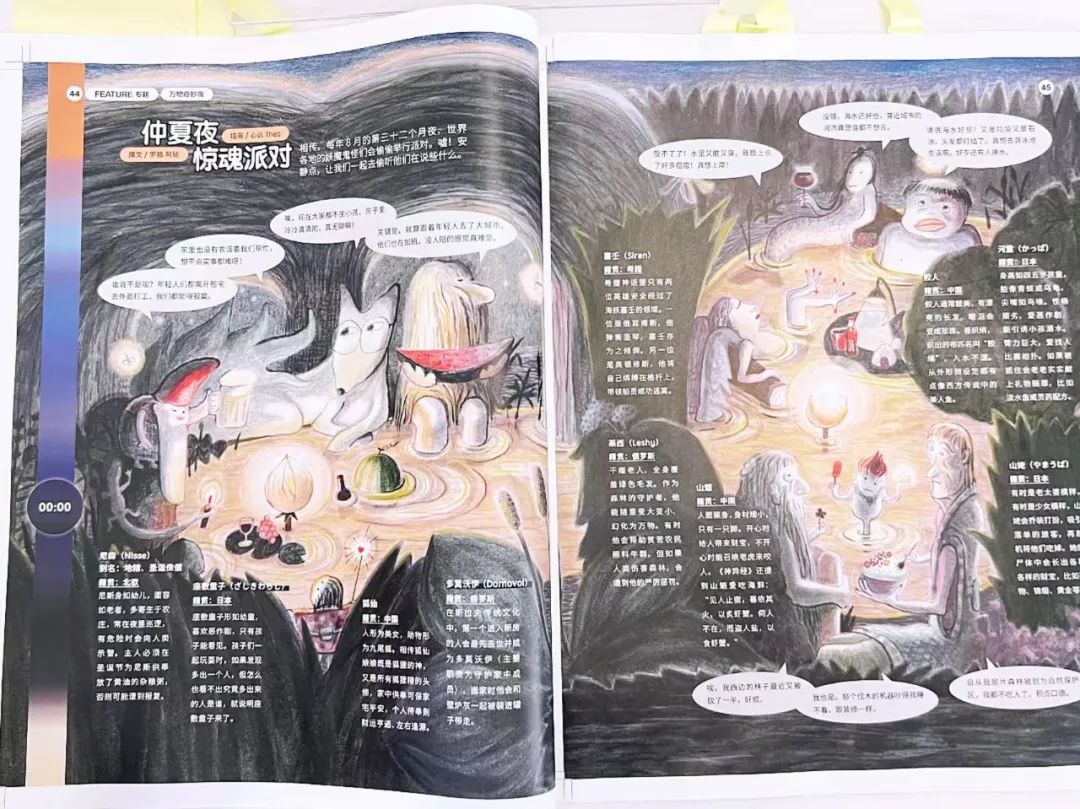 44
FEATURE 专题
万物奇妙夜
仲夏夜
惊魂派对
相传，每年8月的第三十二个月夜，世界
各地的妖魔鬼怪们会偷偷举行派对。嘘！安
静点，让我们一起去偷听他们在说些什么。
唉，现在大家都不生小孩，房子里
冷冷清清的，真无聊啊！
关键是，就算跟着年轻人去了大城市，
他们也在加班，没人陪的感觉真难受。
家里也没有农活要我们帮忙，
想干点实事都难呀！
谁说不是呢？年轻人们都离开祖宅
去外面打工，我们都觉得寂寞。
00:00
尼森（Nisse）
别名：地精、圣诞侏儒
籍贯：北欧
尼斯身如幼儿，面容
如老者，多寄生于农
庄，常在夜里巡逻，
有危险时会向人类
示警。主人必须在
圣诞节为尼斯供奉
放了黄油的杂粮粥，
否则可能遭到报复。
座敷童子（ざしきわらし）
籍贯：日本
座敷童子形如幼童，
喜欢恶作剧，只有孩
子能看见。孩子们一
起玩耍时，如果发现
多出一个人，但怎么
也看不出究竟多出来
的人是谁，就说明座
敷童子来了。
狐仙
籍贯：中国
人形为美女，动物形
为九尾狐。相传狐仙
娘娘既是狐狸的神，
又是所有狐狸精的头
领，家中供奉可保家
宅平安，个人侍奉则
财运亨通、左右逢源。
多莫沃伊（Domovoi）
籍贯：俄罗斯
在斯拉夫传统文化
中，第一个进入新房
的人会最先去世并成
为多莫沃伊（主要
职责为守护家中成
员）。搬家时他会和
壁炉灰一起被装进罐
子带走。
45
没错，海水还好些，靠近城市的
河流真是谁都不想去。
谁说海水好些？又是垃圾又是石
油，头发都打结了。真想去游泳池
生活啊，好歹还有人换水。
受不了了！水里又脏又臭，我脸上长
了好多痘痘！真想上岸！
塞壬（Siren）
籍贯：希腊
希腊神话里只有两
位英雄安全经过了
海妖塞壬的领域。一
位是俄耳甫斯，他
弹奏竖琴，塞壬亦
为之倾倒。另一位
是奥德修斯，他将
自己绑缚在桅杆上，
带领船员成功逃离。
鲛人
籍贯：中国
鲛人通常貌美，有漂
亮的长发，眼泪会
变成珍珠。善织绡，
织出的布匹名叫“鲛
绡”，入水不湿。
从外形到设定都有
点像西方传说中的
美人鱼。
河童（かっぱ）
籍贯：日本
身高如四五岁孩童，
脸像青蛙或乌龟，
尖嘴如鸟喙。性格
顽劣，爱恶作剧，
能引诱小孩溺水。
臂力巨大，爱找人
比赛相扑。如果被
抓住会老老实实献
上礼物赔罪，比如
淡水鱼或灵药配方。
莱西（Leshy）
籍贯：俄罗斯
干瘪老人，全身覆
盖绿色毛发。作为
森林的守护者，他
能随意变大变小、
幻化为万物。有时
他会帮助贫苦农民
照料牛群，但如果
人类伤害森林，会
遭到他的严厉惩罚。
山魈
籍贯：中国
人面猴身，身材矮小，
只有一只脚。开心时
给人带来财宝，不开
心时能召唤老虎来咬
人。《神异经》还提
到山魈爱吃海鲜：
“见人止宿，暮依其
火，以炙虾蟹。伺人
不在，而盗人盐，以
食虾蟹。”
山姥（やまうば）
籍贯：日本
有时是老太婆模样，
有时是少女模样。山
姥会乔装打扮，吸引
落单的旅客，再趁
机将他们吃掉。她的
尸体中会长出各种
各样的财宝，比如
物、锦缎、黄金等
唉，我西边的林子最近又被
砍了一半，好烦。
我也是。那个伐木的机器吵得我睡
不着，跟装修一样。
自从我那片森林被划为自然保护
区，我都不吃人了。积点口德。